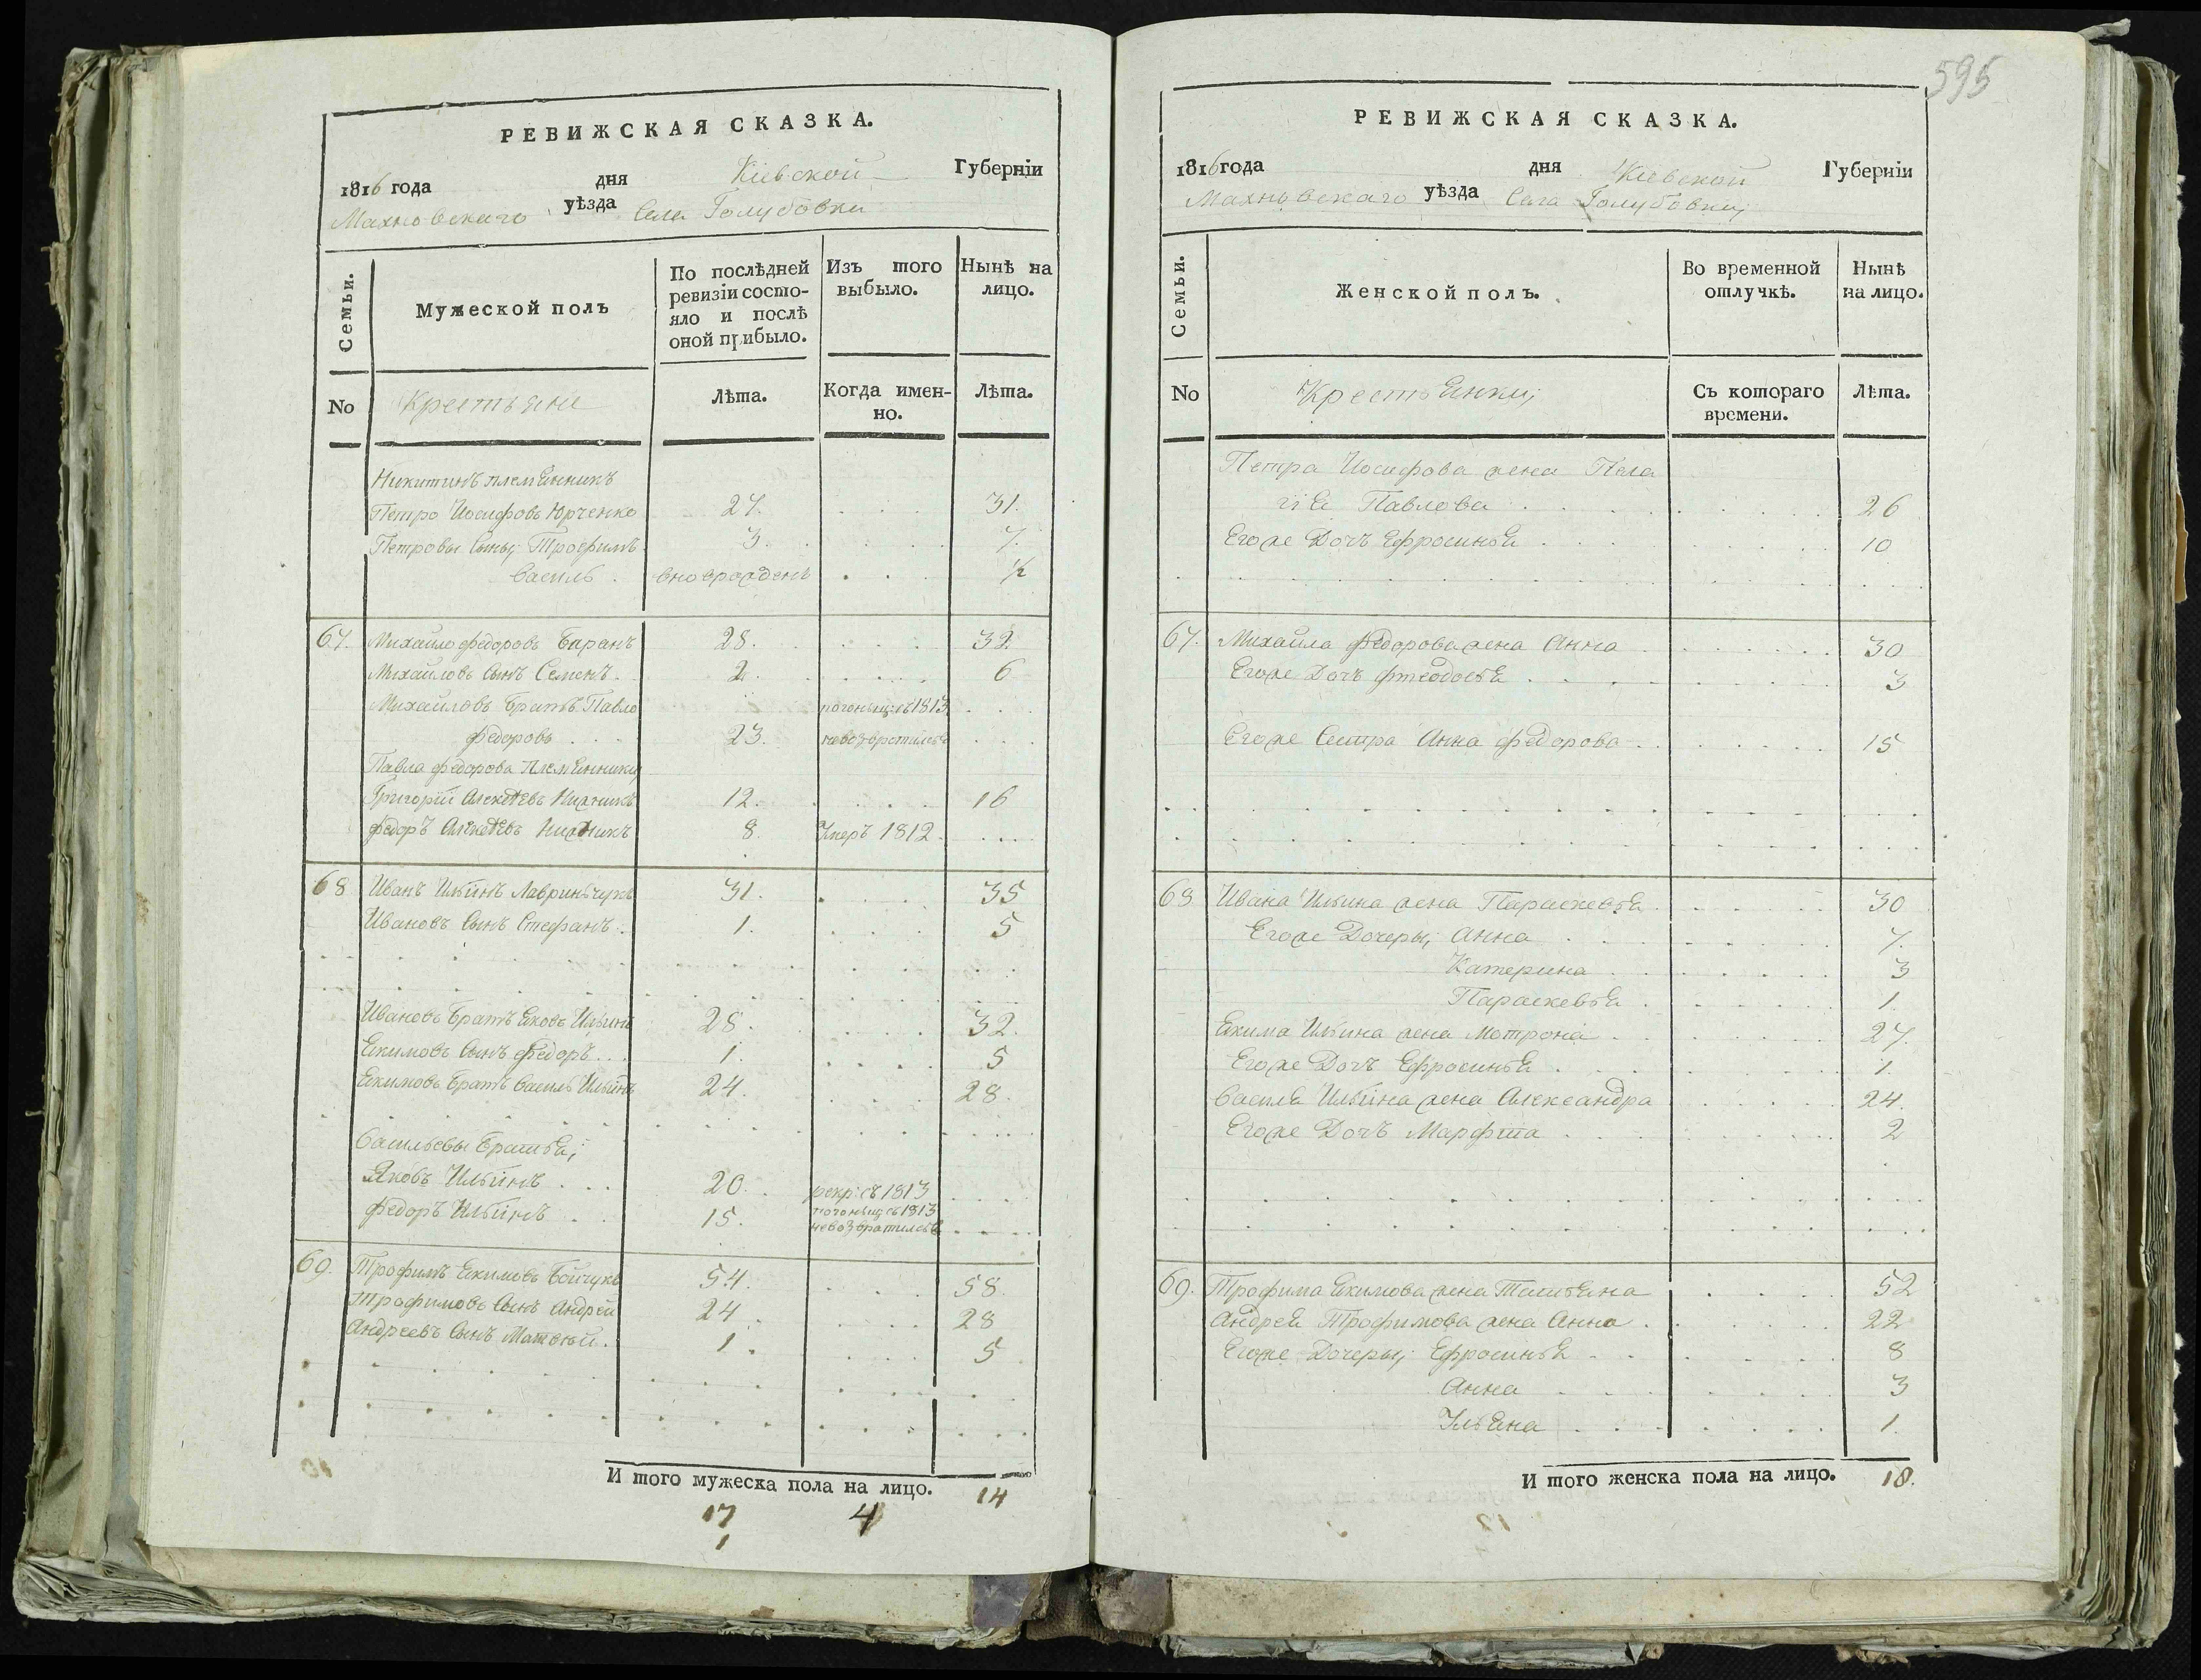 595
РЕВИЖСКАЯ СКАЗКА.
1816 года дня Кіевской Губерніи
Махновскаго уѣзда Села Голубовки
Семьи.
Мужеской полъ
По послѣдней ревизіи состо-
яло и послѣ
оной прибыло.
Изъ того
выбыло.
Нынѣ на
лицо.
No
Крестьяне
Лѣта.
Когда имен-
но.
Лѣта.
Никитинъ племянникъ
Петро Иосифовъ Юрченко 27. 31.
Петровы Сыны; Трофимъ 3. 7.
Василь вноворожденъ 1/2
67. Михайло Федоровъ Баранъ 28. 32
Михайловъ Сынъ Семенъ 2. 6
Михайловъ Братъ Павло погоньщ: съ 1813
Федоровъ 23. невозвратился
Павла Федорова племянники
Григорій Алексѣевъ 12. 16
Федоръ Алексѣевъ 8. Умеръ 1812
68 Иванъ Ильинъ Лавриньчукъ 31. 35
Ивановъ Сынъ Стефанъ 1. 5
Ивановъ Братъ Яковъ Ильинъ 28. 32.
Якимовъ Сынъ Федоръ 1. 5
Якимовъ Братъ Василь Ильинъ 24. 28.
Васильевы Братья;
Яковъ Ильинъ 20. рекр: съ 1813
Федоръ Ильинъ 15. погоньщ съ 1813
невозвратился
69. Трофимъ Якимовъ Бойчукъ 54. 58.
Трофимовъ Сынъ Андрей 24. 28
Андреевъ Сынъ Матвѣй 1. 5
И того мужеска пола на лицо. 14
17 4
1
РЕВИЖСКАЯ СКАЗКА.
1816 года дня Кіевской Губерніи
Махновскаго уѣзда Села Голубовки;
Семьи.
Женской полъ.
Во временной
отлучкѣ.
Нынѣ
на лицо.
No
Крестьянки;
Съ котораго
времени.
Лѣта.
Петра Иосифова жена Пела
гія Павлова 26
Егоже Дочь Ефросинья 10
67. Михайла Федорова жена Анна 30
Егоже Дочь Фтеодосья 3
Егоже Сестра Анна Федорова 15
68 Ивана Ильина жена Параскевья 30
Егоже Дочеры; Анна 7.
Катерина 3
Параскевья 1.
Якима Ильина жена Мотрона 27.
Егоже Дочь Ефросинья 1.
Василя Ильина жена Александра 24.
Егоже Дочь Марфта 2
69. Трофима Якимова жена Татьяна 52
Андрея Трофимова жена Анна 22
Егоже Дочеры; Ефросинья 8
Анна 3
Ульяна 1.
И того женска пола на лицо. 18.